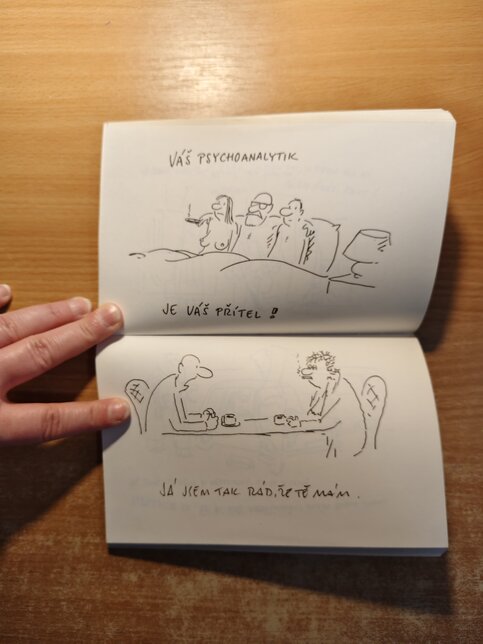 VÁŠ PSYCHOANALYTIK
JE VÁŠ PŘÍTEL!
JÁ JSEM TAK RÁD, ŽE TĚ MÁM.